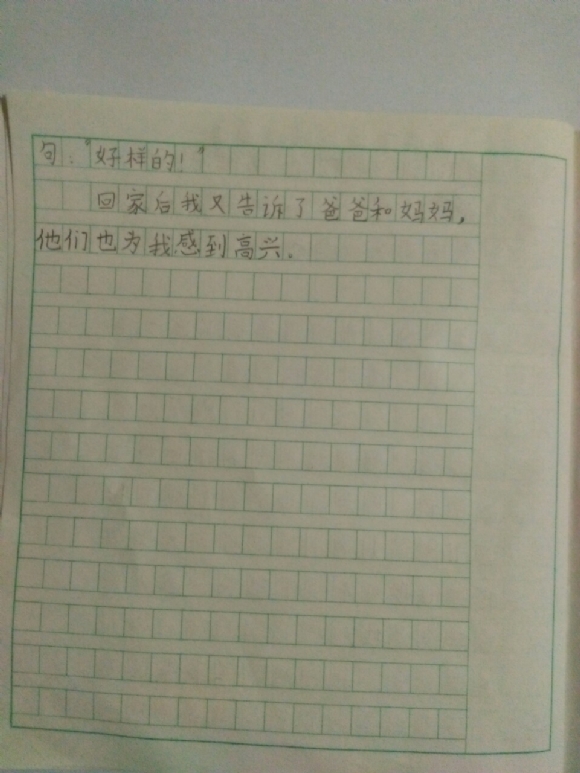 句："好样的！"
回家后我又告诉了爸爸和妈妈，
他们也为我感到高兴。